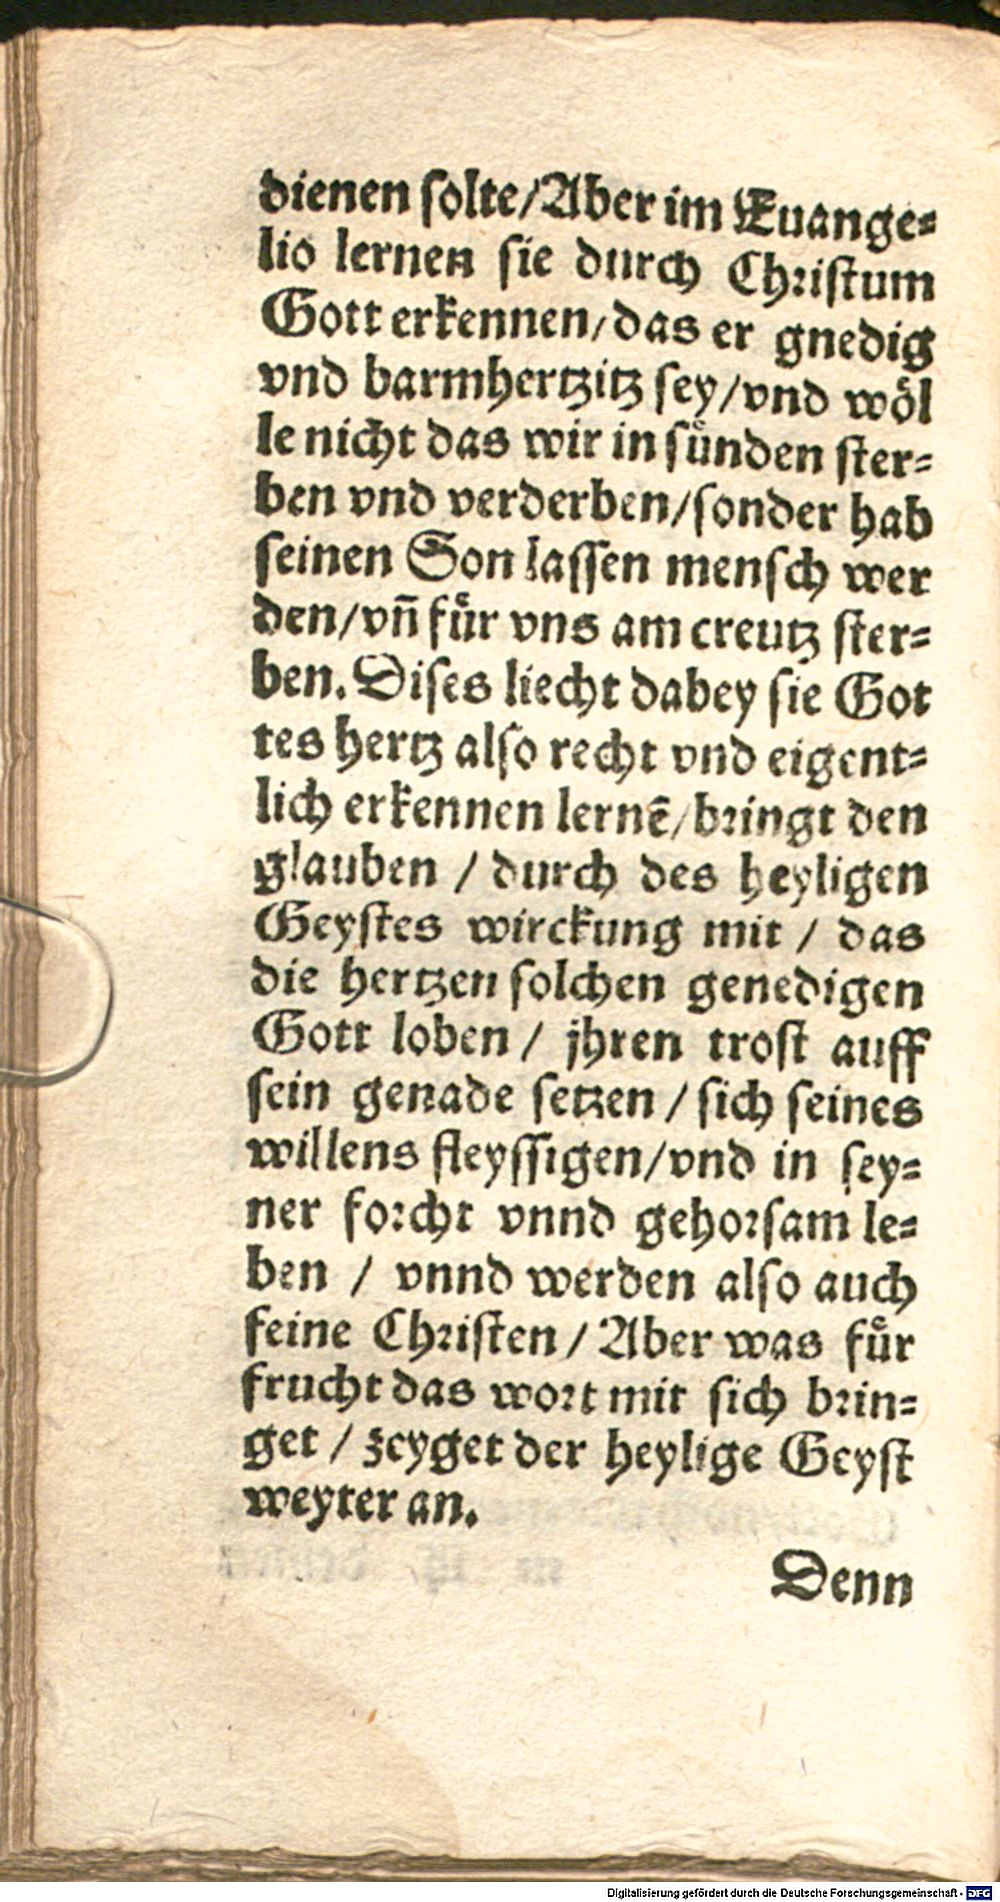 dienen ſolte/Aber im Euange⸗
lio lernen ſie durch Chꝛiſtum
Gott erkennen/das er gnedig
vnd barmhertzitz ſey/vnd woͤl
le nicht das wir in ſuͤnden ſter⸗
ben vnd verderben/ſonder hab
ſeinen Son laſſen menſch wer
den/vn̄ fuͤr vns am creutz ſter⸗
ben. Diſes liecht dabey ſie Got
tes hertz alſo recht vnd eigent⸗
lich erkennen lernē/bꝛingt den
glauben / durch des heyligen
Geyſtes wirckung mit / das
die hertzen ſolchen genedigen
Gott loben / jhren troſt auff
ſein genade ſetzen / ſich ſeines
willens fleyſſigen/vnd in ſey⸗
ner foꝛcht vnnd gehoꝛſam le⸗
ben / vnnd werden alſo auch
feine Chꝛiſten / Aber was fuͤr
frucht das woꝛt mit ſich bꝛin⸗
get / zeyget der heylige Geyſt
weyter an.
Denn
Digitalisierung gefördert durch die Deutsche Forschungsgemeinschaft - DFG